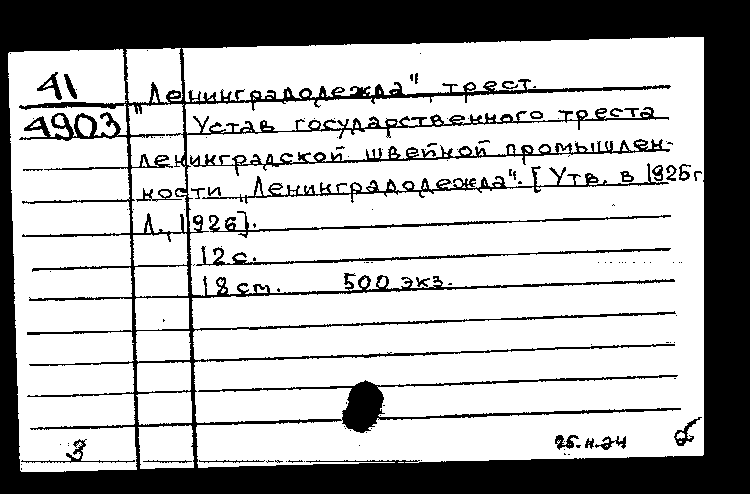 41
4903
"Ленинградодежда", трест.
Устав государственного треста
ленинградской швейной промышлен-
ности "Ленинградодежда". [Утв. в 1925 г.
Л., 1926].
12 с.
18 см. 500 экз.
3